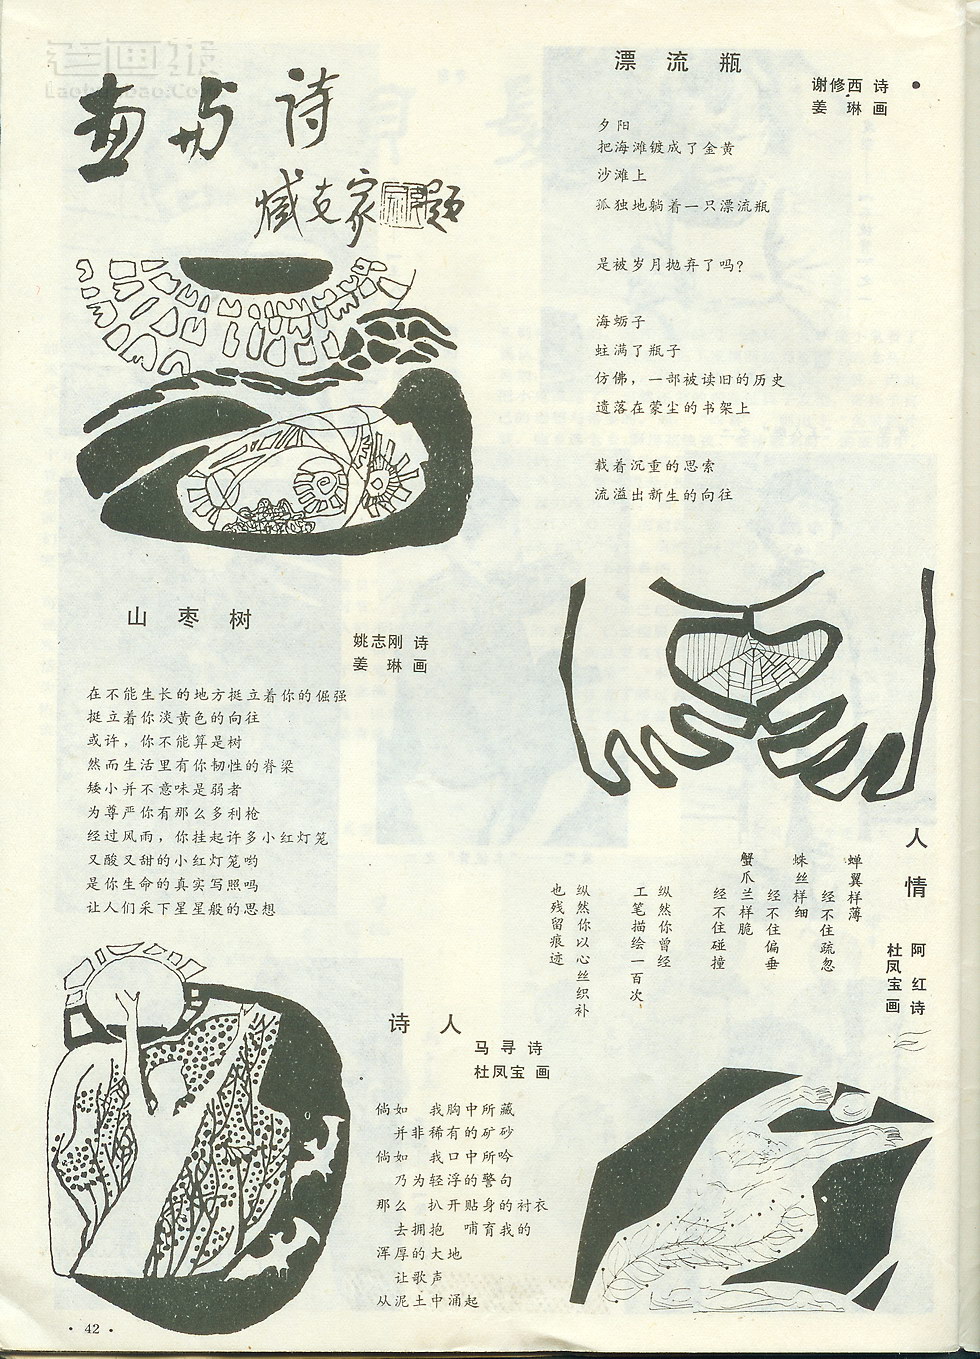 老画报
Laohuabao.Com
画与诗
臧克家题
漂流瓶
谢修西 诗
姜琳 画
夕阳
把海滩镀成了金黄
沙滩上
孤独地躺着一只漂流瓶
是被岁月抛弃了吗?
海蛎子
蛀满了瓶子
仿佛,一部被读旧的历史
遗落在蒙尘的书架上
载着沉重的思索
流溢出新生的向往
山枣树
姚志刚 诗
姜琳 画
在不能生长的地方挺立着你的倔强
挺立着你淡黄色的向往
或许,你不能算是树
然而生活里有你韧性的脊梁
矮小并不意味是弱者
为尊严你有那么多利枪
经过风雨,你挂起许多小红灯笼
又酸又甜的小红灯笼哟
是你生命的真实写照吗
让人们采下星星般的思想
人情
阿红 诗
杜凤宝 画
蝉翼样薄
经不住疏忽
蛛丝样细
经不住偏垂
蟹爪兰样脆
经不住碰撞
纵然你曾经
工笔描绘一百次
纵然你以心丝织补
也残留痕迹
诗人
马寻 诗
杜凤宝 画
倘如 我胸中所藏
并非稀有的矿砂
倘如 我口中所吟
乃为轻浮的警句
那么 扒开贴身的衬衣
去拥抱 哺育我的
浑厚的大地
让歌声
从泥土中涌起
· 42 ·